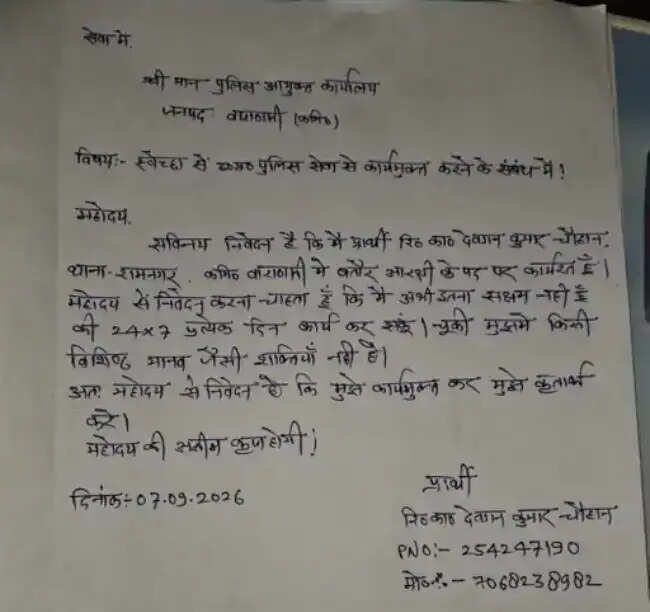 सेवा में,
श्री मान पुलिस आयुक्त कार्यालय
जनपद वाराणसी (कमि०)
विषय:- स्वेच्छा से उ०प्र० पुलिस सेवा से कार्यमुक्त करने के संबंध में!
महोदय,
सविनय निवेदन है कि मै प्रार्थी रि० का० देवान कुमार चौहान,
थाना-रामनगर, कमि० वाराणसी मे बतौर आरक्षी के पद पर कार्यरत हूँ।
महोदय से निवेदन करना चाहता हूँ कि मै अभी इतना सक्षम नही हूँ
की 24x7 प्रत्येक दिन कार्य कर सकूं। चुकी मुझमे किसी
विशिष्ठ मानव जैसी शक्तियाँ नही है।
अतः महोदय से निवेदन है कि मुझे कार्यमुक्त कर मुझे कृतार्थ
करे।
महोदय की असीम कृपा होगी!
दिनांक:- 07.09.2026
प्रार्थी
रि० का० देवान कुमार चौहान
PNO:- 254247190
मो०नं.:- 7068238982